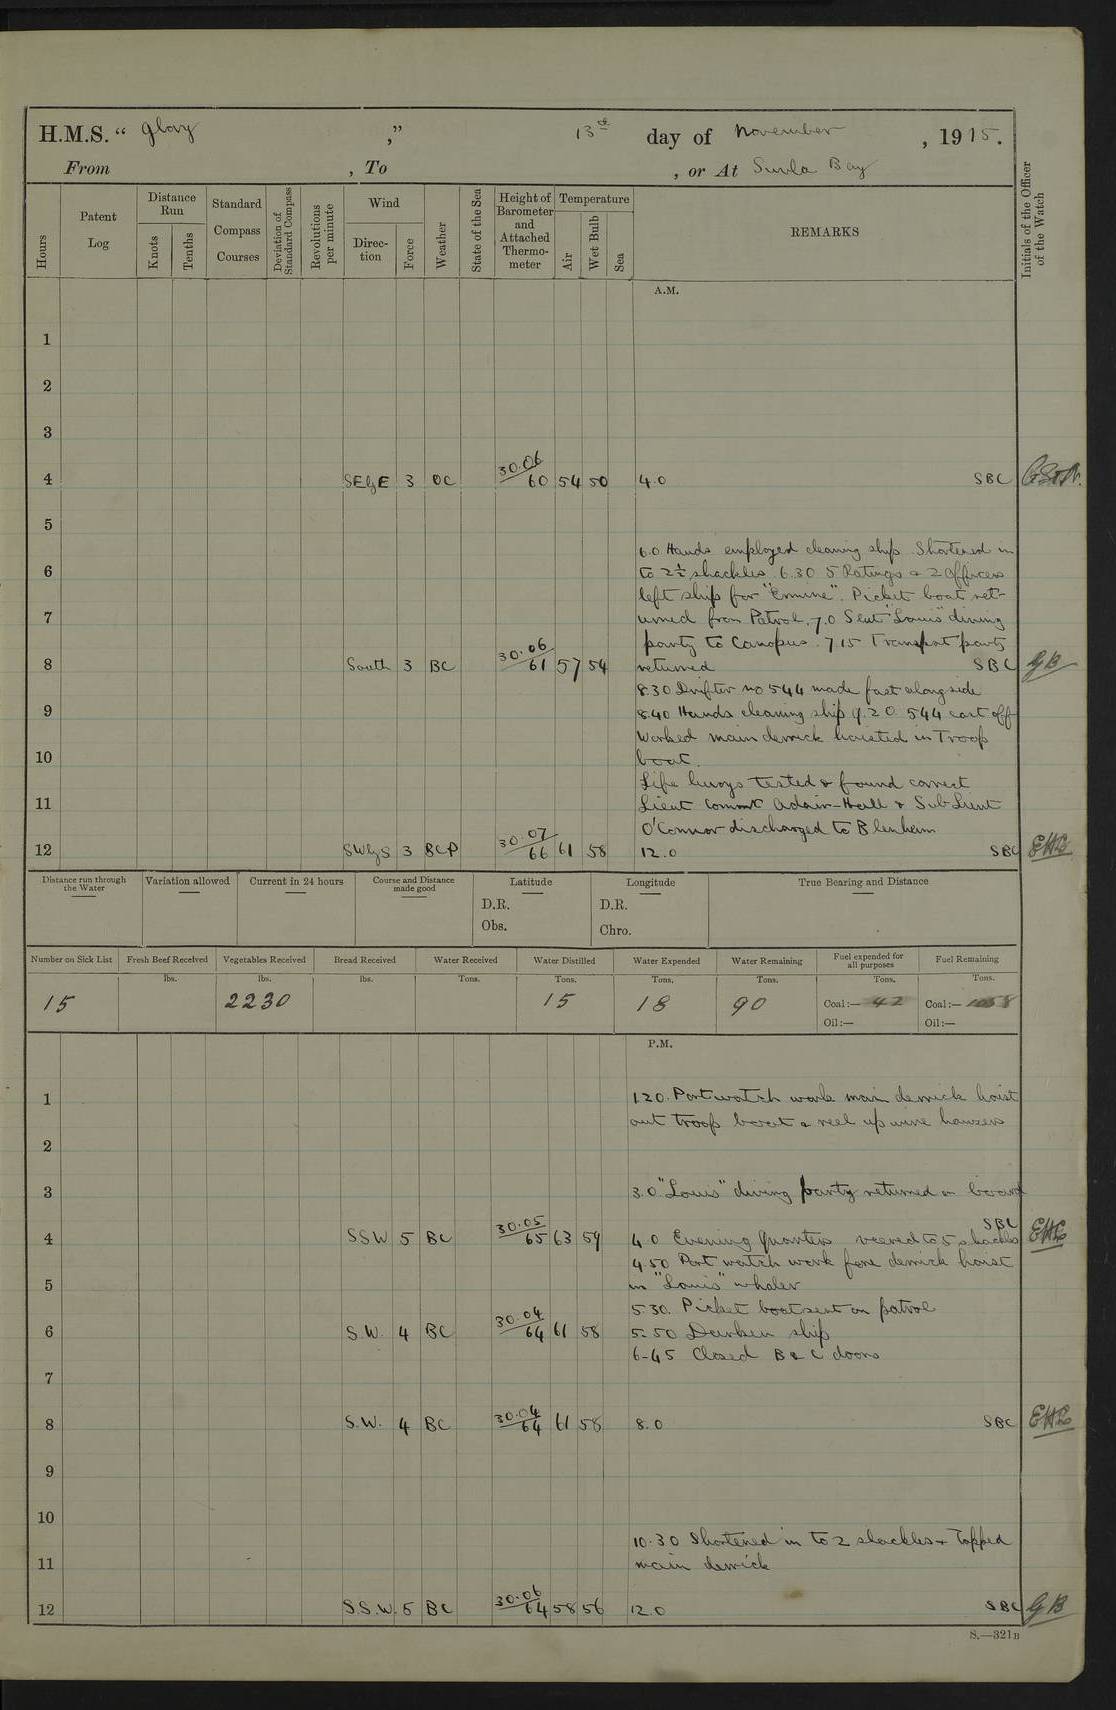 H.M.S. " Glory ," 13th day of November , 1915.
From , To , or At Suvla Bay
Hours
Patent Log
Distance Run
Knots
Tenths
Standard Compass Courses
Deviation of Standard Compass
Revolutions per minute
Wind
Direc-tion
Force
Weather
State of the Sea
Height of Barometer and Attached Thermo-meter
Temperature
Air
Wet Bulb
Sea
REMARKS
Initials of the Officer of the Watch
A.M.
1
2
3
4 SEbE 3 OC 30.06/60 54 50 4.0 SBC
5
6.0 Hands employed cleaning ship. Shortened in
6 to 2½ shackles. 6.30 5 Ratings & 2 Officers
left ship for "Ermine". Picket boat ret-
7 urned from Patrol. 7.0 Sent "Louis" diving
party to Canopus. 7.15 Transport party
8 South 3 BC 30.06/61 57 54 returned SBC GB
8.30 Drifter no 544 made fast alongside
9 8.40 Hands cleaning ship 9.20 544 cast off
Worked main derrick hoisted in Troop
10 boat.
Life buoys tested & found correct
11 Lieut Commr Adair-Hall & Sub Lieut
O'Connor discharged to Blenheim
12 SWbS 3 BCP 30.07/66 61 58 12.0 SBC
Distance run through the Water
Variation allowed
Current in 24 hours
Course and Distance made good
Latitude
D.R.
Obs.
Longitude
D.R.
Chro.
True Bearing and Distance
Number on Sick List
Fresh Beef Received
Vegetables Received
Bread Received
Water Received
Water Distilled
Water Expended
Water Remaining
Fuel expended for all purposes
Fuel Remaining
lbs. lbs. lbs. Tons. Tons. Tons. Tons. Tons. Tons.
15 2230 15 18 90 Coal:— 42 Coal:— 1058
Oil:— Oil:—
P.M.
1 1.20. Port watch work main derrick hoist
out troop boat & reel up wire hawsers
2
3 3.0 "Louis" diving party returned on board
SBC
4 SSW 5 BC 30.05/65 63 59 4.0 Evening Quarters veered to 5 shackles
4.50 Port watch work fore derrick hoist
5 in "Louis" whaler
5.30. Picket boat sent on patrol
6 S.W. 4 BC 30.04/64 61 58 5.50 Darken ship
6-45 Closed B & C doors
7
8 S.W. 4 BC 30.04/64 61 58 8.0 SBC
9
10
10.30 Shortened in to 2 shackles & Topped
11 main derrick
12 S.S.W. 5 BC 30.06/64 58 56 12.0 SBC GB
S.—321B